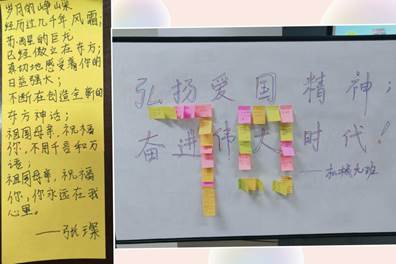 岁月的峥嵘
经历过几千年风霜;
苏醒的巨龙
已经傲立在东方;
真切地感受着你的
日益强大;
不断在创造全新的
东方神话;
祖国母亲,祝福
你,不用千言和万
语;
祖国母亲,祝福
你,你永远在我
心里。
——张琛
弘扬爱国精神;
奋进伟大时代!
——机械九班
70